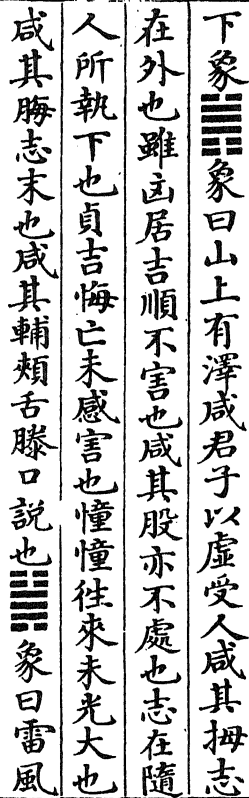 下象䷞象曰山上有澤咸君子以虛受人咸其拇志
在外也雖凶居吉順不害也咸其股亦不處也志在隨
人所執下也貞吉悔亡未感害也憧憧徃來未光大也
咸其脢志末也咸其輔頰舌滕口說也䷟象曰雷風